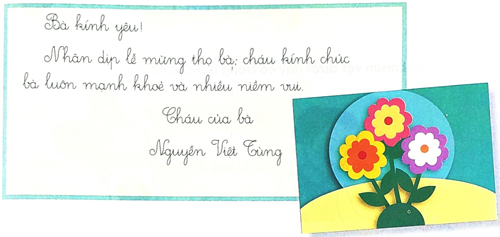 Bà kính yêu!
Nhân dịp lễ mừng thọ bà; cháu kính chúc
bà luôn mạnh khoẻ và nhiều niềm vui.
Cháu của bà
Nguyễn Viết Tùng